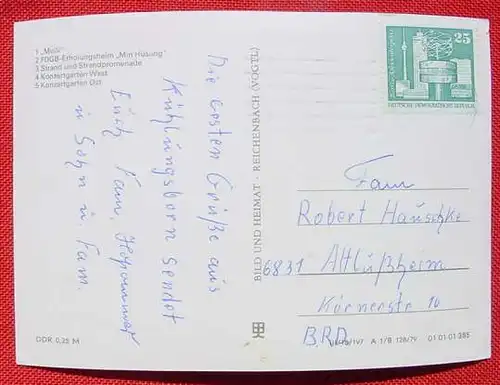 1 „Molli“
2 FDGB-Erholungsheim „Min Hüsung“
3 Strand und Strandpromenade
4 Konzertgarten West
5 Konzertgarten Ost
Die besten Grüße aus
Kühlungsborn sendet
Euch Fam.
u Sohn u. Fam.
DDR 0,25 M
BILD UND HEIMAT · REICHENBACH (VOGTL)
25
DEUTSCHE DEMOKRATISCHE REPUBLIK
Fam
Robert Hauschke
6831 Altlußheim
Körnerstr 10
BRD
A 1/B 128/79 01 01 01 385